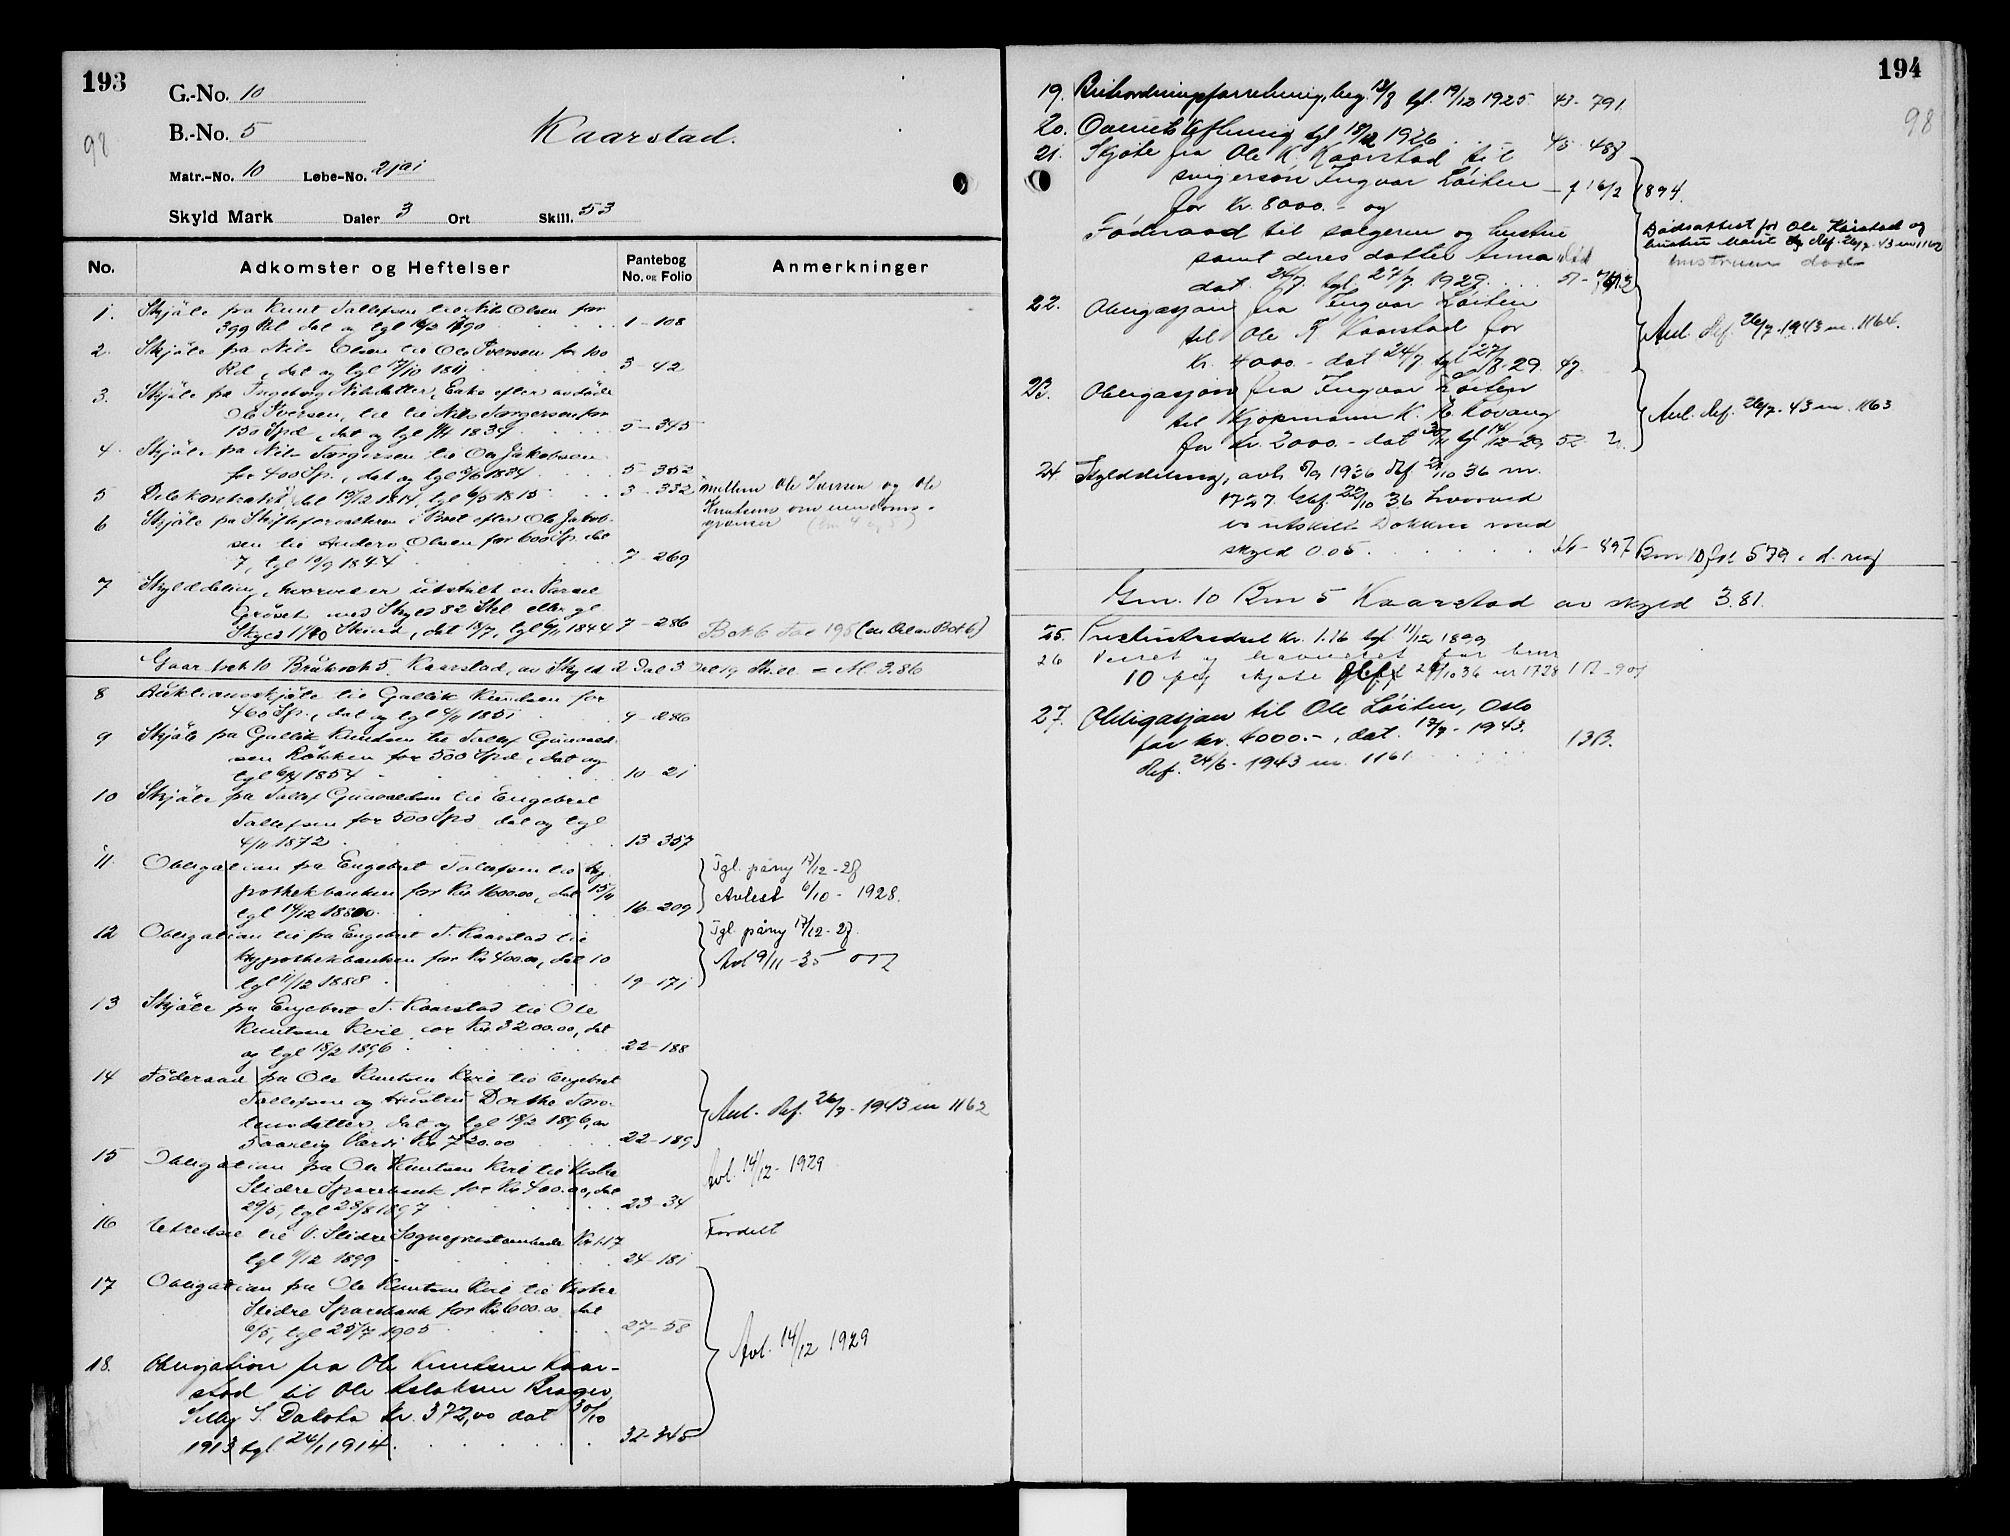 193
98
G.-No. 10
B.-No. 5
Kaarstad.
Matr.-No. 10 Løbe-No. 2
Skyld Mark Daler 3 Ort Skill. 53
No. Adkomster og Heftelser Pantebog No. og Folio Anmerkninger
1. Skjöte fra Knut Tollefsen til Nils Olsen for
399 Rdl dat og tgl 1790 1-108
2. Skjöte fra Nils Olsen til Ole Iversen for 100
Rd, dat og tgl 17/10 1811 3-42
3. Skjöte fra Ingeborg Nilsdatter, Enke efter avdöde
Ole Iversen, til Nils Torgersen for
150 Spd, dat og tgl 1834 5-345
4. Skjöte fra Nils Torgersen til Ola Jakobsen
for 400 Sp., dat og tgl 1834 5-352
5 Delekontrakt, dat 19/12 1814, tgl 6/5 1815 3-332 mellem Ole Iversen og Ole
Knutsen om eiendoms-
grænser
6 Skjöte fra Skifteforvalteren i Boet efter Ole Jakob-
sen til Anders Olsen for 600 Sp. dat
7, tgl 10/9 1844 7-269
7 Skylddeling, hvorved er utskilt en Parsel
Gröset med Skyld 82 Skl eller gl
Skyld Skind, dat 13/7, tgl 6/11 1844 7-286 B No 6 Fol 195 (en Del av B No 6)
Gaards No 10 Bruks No 5 Kaarstad, av Skyld 2 Dal 3 Ort 19 Skill = M. 3.86
8 Auktionsskjöte til Gullik Knudsen for
460 Sp., dat og tgl 4/11 1851 9-286
9 Skjöte fra Gullik Knudsen til Tollef Gunvald-
sen Röbben for 500 Spd, dat og
tgl 1854 10-21
10 Skjöte fra Tollef Gunvaldsen til Engebret
Tollefsen for 500 Spd dat og tgl
4/11 1872 13-357
11. Obligation fra Engebret Tollefsen til Hy-
pothekbanken for Kr 1600.00, dat 15/11
tgl 14/12 1880 16-209 Tgl. påny 17/12-27
Avlest 6/10 - 1928.
12 Obligation til fra Engebret T. Kaarstad til
Hypothekbanken for Kr 400.00, dat 10
tgl 11/12 1888 19-171 Tgl. påny 17/12-27.
Avl 9/11-35
13 Skjöte fra Engebret T. Kaarstad til Ole
Knutsen Kvie for Kr 3200.00, dat
og tgl 18/2 1896 22-188
14 Föderaad fra Ole Knutsen Kvie til Engebret
Tollefsen og Hustru Dorthe Toro-
lunsdatter, dat og tgl 18/2 1896, av
5 aarlig Værdi Kr 720.00 22-189 Avl. Ref. 26/7-1943 nr 1162
15 Obligation fra Ole Knutsen Kvie til Vestre
Slidre Sparebank for Kr 400.00, dat
29/5, tgl 23/8 1897 23-34 Avl. 14/12-1929
16 Utredsel til V. Slidre Sogneprestembede Kr 1.17
tgl 11/12 1899 24-181 Fordelt
17 Obligation fra Ole Knutsen Kvie til Vestre
Slidre Sparebank for Kr 600.00 dat
6/5, tgl 25/7 1905 27-58
Avl. 14/12 1929
18. Obligation fra Ole Knudsen Kaar-
stad til Ole Aslaksen Brager,
Selby S. Dakota kr. 372,00 dat 30/10
1913 tgl 24/1 1914. 32-345
194
98
19. tgl. 19/12 1925. 43-791.
20. tgl 18/12 1926 45-487
21. Skjöte fra Ole K. Kaarstad til
svigersön Ingvar Löiten f 16/2 1894.
for kr. 8000.- og
Föderaad til sælgeren og hustru Dödsattest for Ole Kårstad og
samt deres datter Anna hustru Marit Ref. 26/7-43 nr 1162
dat. 24/7. tgl. 27/7. 1929. 51-
hustruen död
22. Obligasjon fra Ingvar Löiten
til Ole K. Kaarstad for Avl. Ref. 26/7-1943 nr. 1164.
Kr. 4000.- dat 24/7 tgl 27/7.29. 47
23. Obligasjon fra Ingvar Löiten
til Kjöpmann K. E. Lovang Avl. Ref. 26/7-43 nr. 1163
for Kr. 2000.- dat tgl 14/12-29 52
24. Skylddeling, avh. 1936 Ref /10 36 nr.
1727 tgl. 22/10 36 hvorved
er utskilt Dokken med
skyld 0.05 -897 Bnr 10 fol 579 i d. reg
Gnr. 10 Bnr 5 Kaarstad av skyld 3.81.
25. Presteutredsel kr. 1.16 tgl 11/12 1899
26 Veiret og havneret for bnr
10 iflg skjöte 22/10 36 nr 1728 1 B-901
27. Obligasjon til Ole Löiten, Oslo
for kr. 4000.-, dat. 17/7-1943. 13B.
Ref. 24/6-1943 nr. 1161